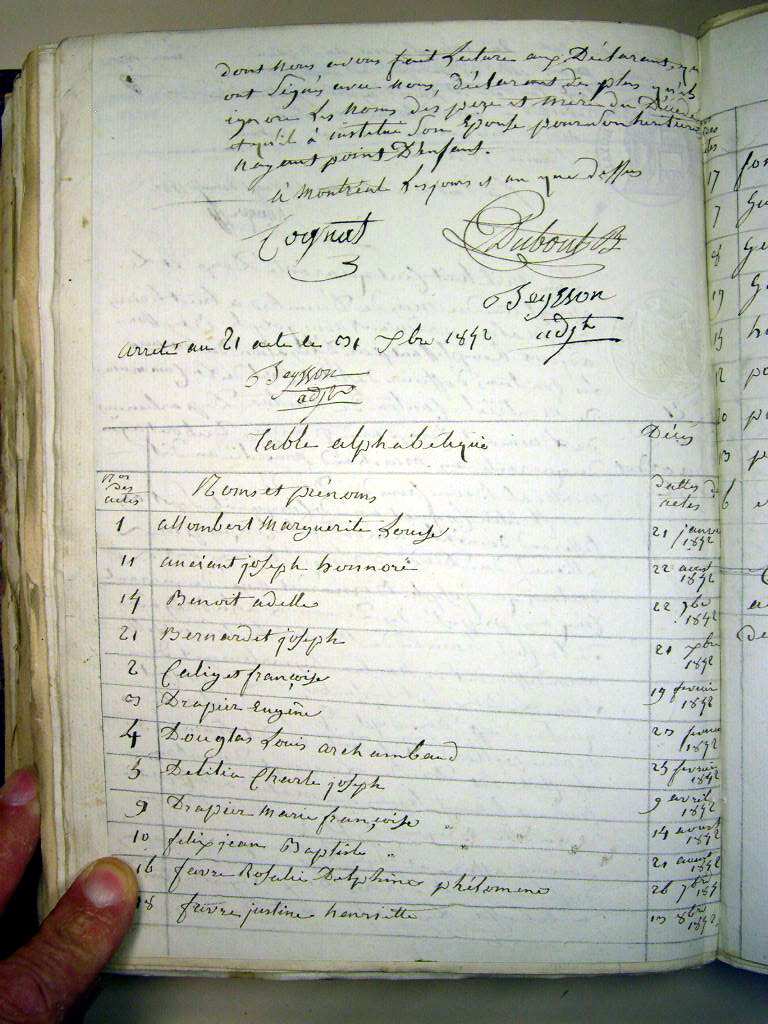 dont nous avons fait Lecture aux Déclarants, qui
ont Signés avec nous, déclarant de plus qu'ils
ignore Les Noms des pere et Mere du Décédé
et qu'il à institué Son Epouse pour Son heritiere
nayant point D'enfant.
a Montréal Les jours et an que dessus
Cognat
Dubout
Beysson
adjt
arreté au 21 acte le 31 Xbre 1842
Beysson
adjt
table alphabétique Décés
Nos des actes Noms et prénoms dattes des actes
1 allombert Marguerite Louise 21 janvr 1842
11 anciant joseph honnoré 22 aoust 1842
14 Benoit adelle 22 7bre 1842
21 Bernardet joseph 21 Xbre 1842
2 Caliget françoise 19 fevrier 1842
3 Drapier Eugéne 23 fevrier 1842
4 Douglas Louis archambaud 25 fevrier 1842
5 Delilia Charle joseph 9 avril 1842
9 Drapier Marie françoise 14 aoust 1842
10 felix jean Baptiste 21 aoust 1842
16 favre Rosalie Delphine phélomene 26 7bre 1842
18 favre justine henriette 13 8bre 1842
17
7
8
19
15
12
20
13
6